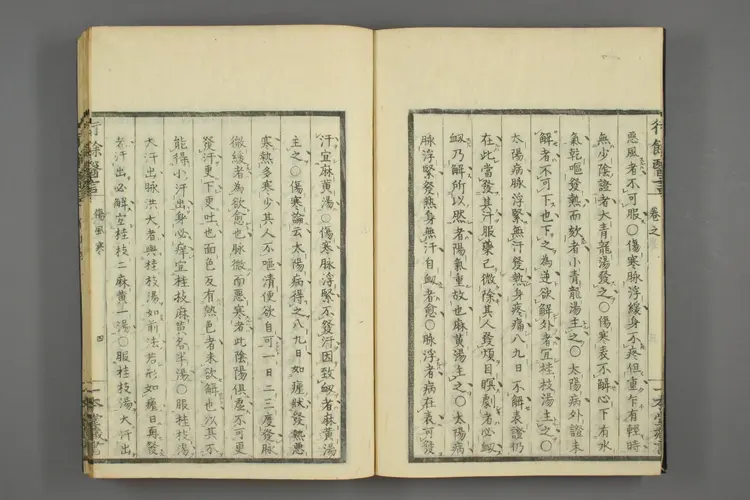 行餘醫言 卷之
惡風者不可服○傷寒脉浮緩身不疼但重乍有輕時
無少陰證者大青龍湯發之○傷寒表不解心下有水
氣乾嘔發熱而欬者小青龍湯主之○太陽病外證未
解者不可下也下之為逆欲解外者宜桂枝湯主之○
太陽病脉浮緊無汗發熱身疼痛八九日不解表證仍
在此當發其汗服藥已微除其人發煩目瞑劇者必衂
衂乃解所以然者陽氣重故也麻黃湯主之○太陽病
脉浮緊發熱身無汗自衂者愈○脉浮者病在表可發
汗宜麻黃湯○傷寒脉浮緊不發汗因致衂者麻黃湯
主之○傷寒論云太陽病得之八九日如瘧狀發熱惡
寒熱多寒少其人不嘔清便欲自可一日二三度發脉
微緩者為欲愈也脉微而惡寒者此陰陽俱虛不可更
發汗更下更吐也面色反有熱色者未欲解也以其不
能得小汗出身必痒宜桂枝麻黃各半湯○服桂枝湯
大汗出脉洪大者與桂枝湯如前法若形如瘧日再發
者汗出必解宜桂枝二麻黃一湯○服桂枝湯大汗出
行餘醫言 傷風寒 四